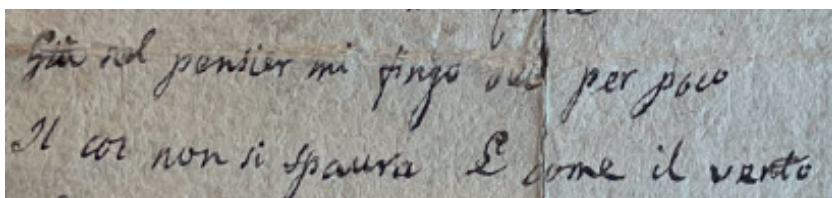 nel pensier mi fingo ove per poco
Il cor non si spaura E come il vento